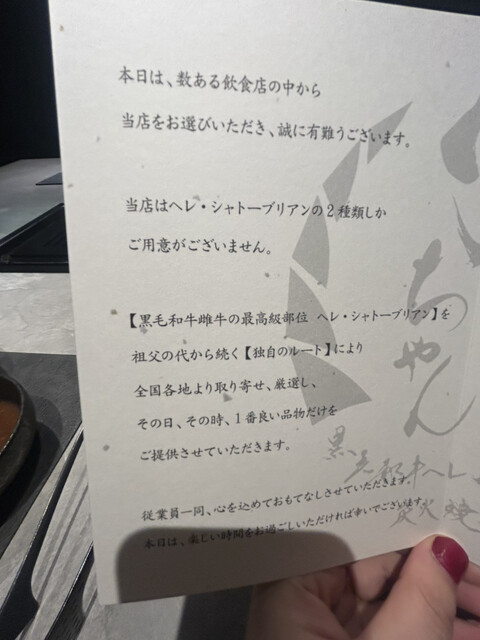 本日は、数ある飲食店の中から
当店をお選びいただき、誠に有難うございます。
当店はヘレ・シャトーブリアンの2種類しか
ご用意がございません。
【黒毛和牛雌牛の最高級部位 ヘレ・シャトーブリアン】を
祖父の代から続く【独自のルート】により
全国各地より取り寄せ、厳選し、
その日、その時、1番良い品物だけを
ご提供させていただきます。
従業員一同、心を込めておもてなしさせていただきます。
本日は、楽しい時間をお過ごしいただければ幸いでございます。
ちゃん
黒
牛ヘレ
炭火焼